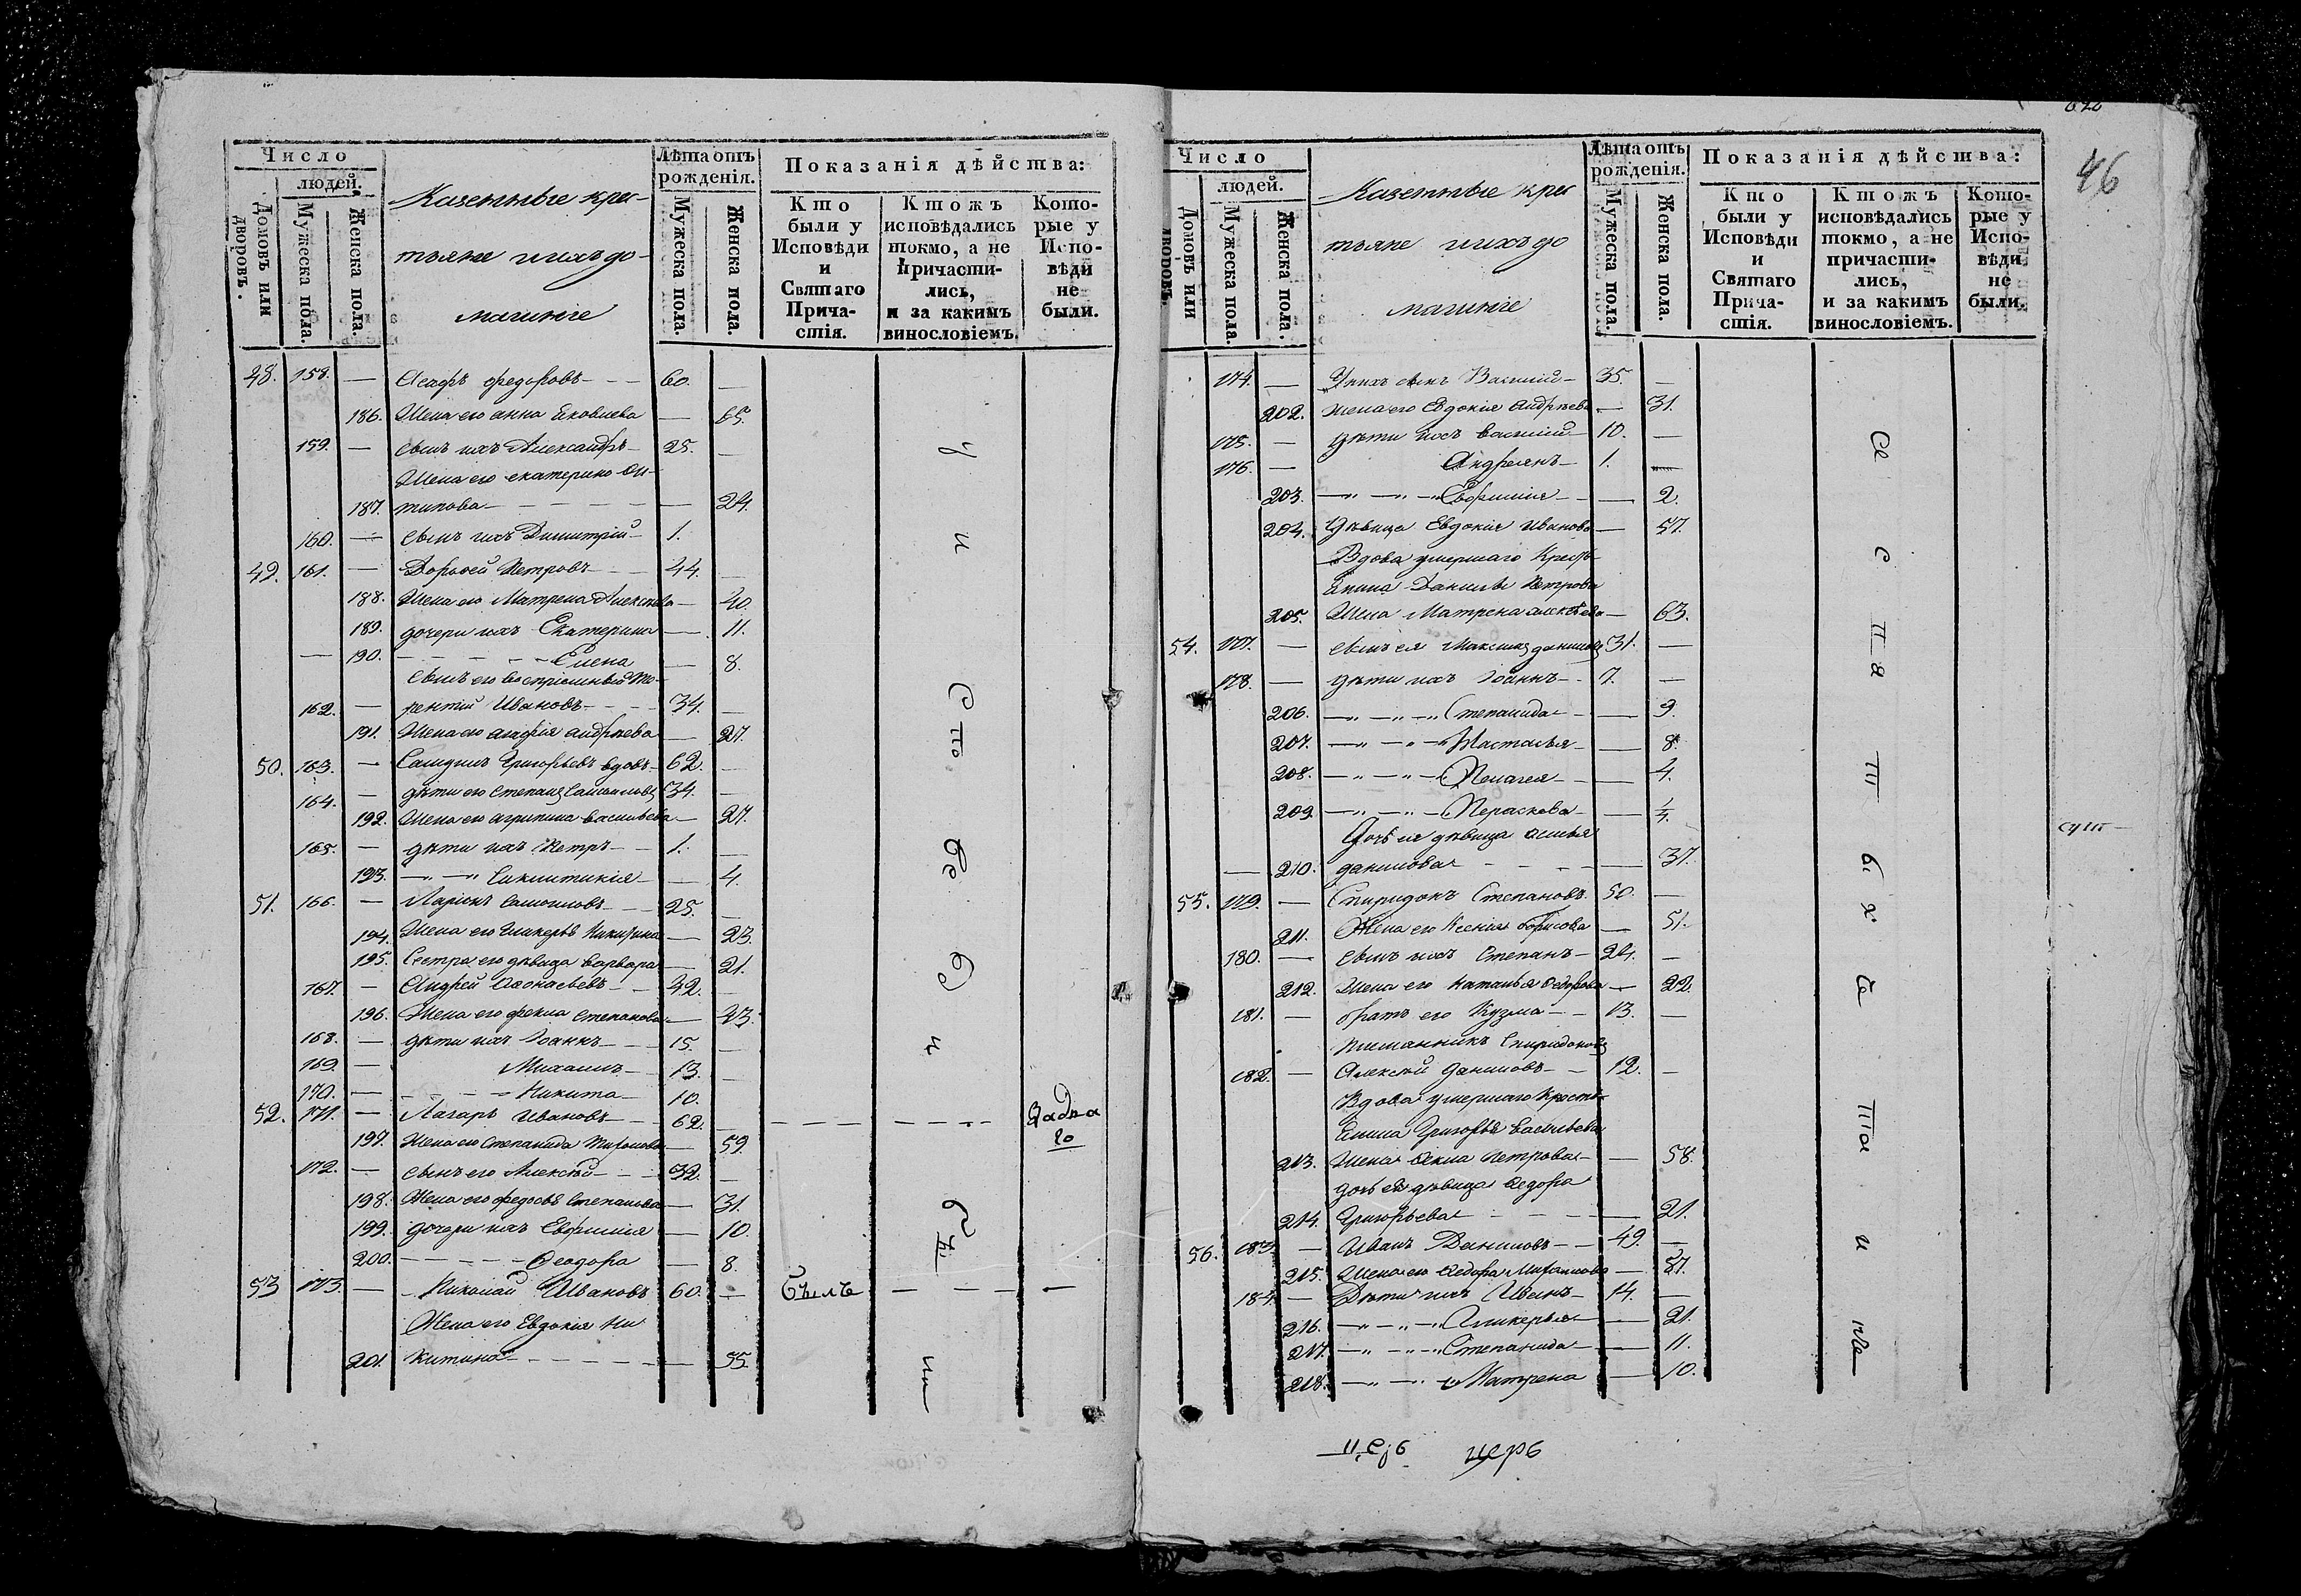 Число
людей.
Домовъ или дворовъ.
Мужеска пола.
Женска пола.
Казенные крес-
тьяне и ихъ до-
машніе
Лѣта отъ рожденія.
Мужеска пола.
Женска пола.
Показанія дѣйства:
Кто были у Исповѣди и Святаго Прича-стія.
Ктожъ исповѣдались токмо, а не причасти-лись, и за какимъ винословіемъ.
Кото-рые у Испо-вѣди не были.
48. 158. — федоровъ — 60. —
186. Жена его анна Яковлева — 65.
159. — сынъ ихъ Александръ — 25. —
Жена его екатерина Ан-
187. типова — — 24.
160. — сынъ ихъ Димитрій — 1.
49. 161. — Дорофей Петровъ — 44. —
188. Жена его Матрена — 40.
189. дочери ихъ Екатерина — 11.
— 190. — Елена — 8.
сынъ его воспріемный Те-
162. — рентій Ивановъ — 34. —
191. Жена его агафія андрѣева — 27.
50. 163. — Самуилъ Григорьевъ вдовъ — 62. —
164. — дѣти его Степанъ Самойловъ 34. —
192. Жена его агрипина васильева — 27.
165. — дѣти ихъ Петръ — 1. —
193. — „ — „ Синклитикія — 4.
51. 166. — Ларіонъ Самоиловъ — 25. —
194. Жена его Гликерья Никифова — 23.
195. Сестра его дѣвица варвара — 21.
167. — Андрей Афонасьевъ — 42. —
196. Жена его фекла степанова — 43.
168. — дѣти ихъ Іоаннъ — 15. —
169. — Михаилъ — 13. —
170. — Никита — 10.
52. 171. — Лазарь Ивановъ — 62. —
197. Жена его Степанида — 59.
172. — сынъ его Алексѣй — 32. —
198. Жена его федосья Степанова — 31.
199. дочери ихъ Евфимія — 10.
200. — Феодора — 8.
53 173. — Николай Ивановъ 60. — Былъ — — — —
Жена его Евдокія Ни
201. китина — — 55.
46
Число
людей.
Домовъ или дворовъ.
Мужеска пола.
Женска пола.
Казенные крес
тьяне и ихъ до
машніе
Лѣта отъ рожденія.
Мужеска пола.
Женска пола.
Показанія дѣйства:
Кто были у Исповѣди и Святаго Прича-стія.
Ктожъ исповѣдались токмо, а не причасти-лись, и за какимъ винословіемъ.
Кото-рые у Испо-вѣди не были.
174. — У нихъ сынъ Василій — 35. —
202. жена его Евдокія андрѣева — 31.
175. — дѣти ихъ василій — 10. —
176. — Андреянъ — 1. —
203. — „ — „ — „ Евфимія — — 2.
204. Дѣвица Евдокія Иванова — 57.
Вдова умершаго Кресть-
янина Данилы Петрова
205. Жена Матрена — 63.
54. 177. — сынъ ея Максимъ даниловъ 31. —
178. — дѣти ихъ Іоаннъ — 7. —
206. — „ — „ — „ Степанида — — 9.
207. — „ — „ — Настасья — — 8.
208. — „ — „ — Пелагея — — 4.
209. — „ — „ — Перасковa — — ¼.
Дочь ея дѣвица
— 210. данилова — — 37.
55. 179. — Спиридонъ Степановъ. 50. —
211. Жена его Ксенія борисова — 51.
180. — сынъ ихъ Степанъ — 24. —
212. Жена его Наталья Федорова — 22.
181. — братъ его Кузма — 13. —
Питанникъ Спиридоновъ
182. — Алексѣй Даниловъ — 12. —
Вдова умершаго Кресть-
янина Григорья васильева
213. Жена Фекла Петрова — — 58.
дочь ея дѣвица Федора
214. Григорьева — — 21.
56. 183. — Иванъ Даниловъ — 49. —
215. Жена его Федора — 57.
184. — Дѣти ихъ Иванъ — 14. —
216. — „ — „ — „ Гликерья — — 21.
217. — „ — „ — „ Степанида — — 11.
218. — „ — „ — „ Матрена — 10.
церь